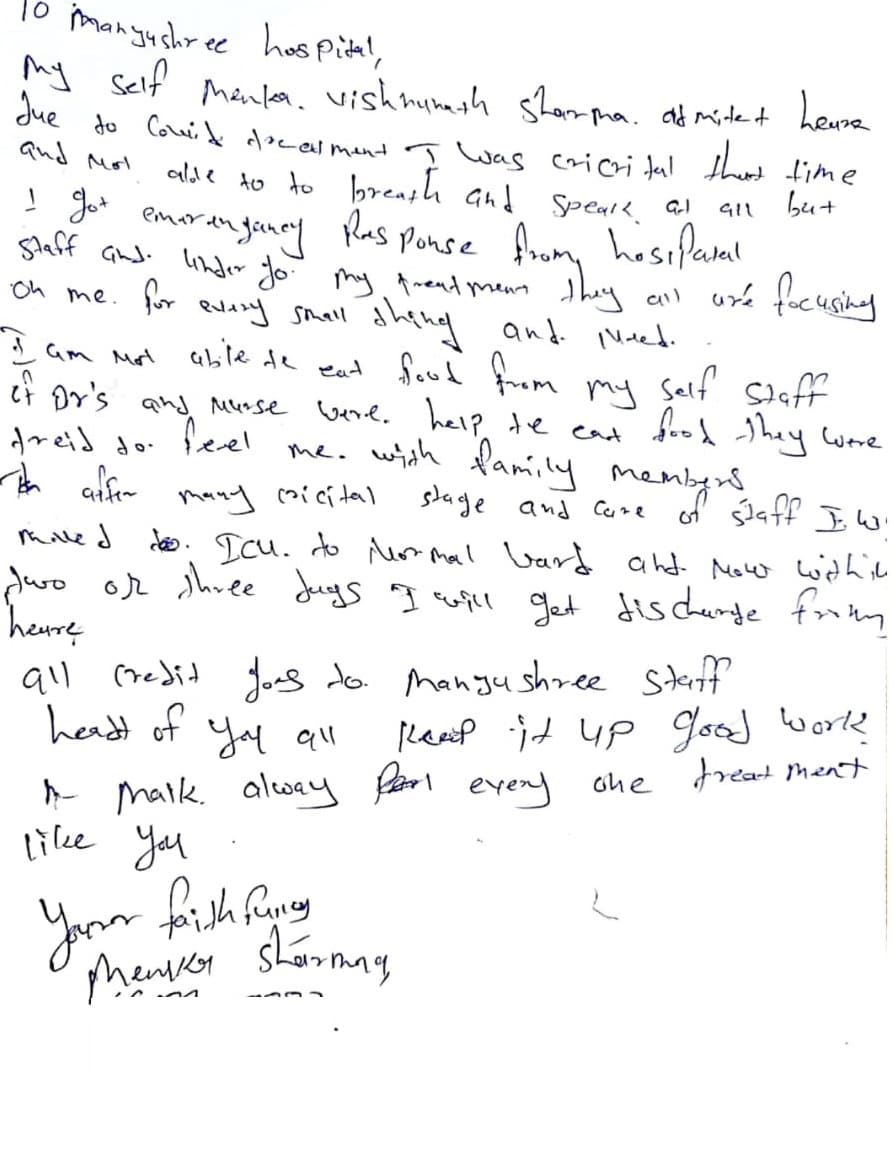 To Manjushree hospital,
My self Menka. vishnunath sharma. admitet heure
due to Covid docarment I was cricrital that time
and Not able to to breath and speak at all but
I got emerangancy Response from hosipatal
Staff and. Under go. my treatment they all are focusing
on me. for every small thing and. Need.
I am Not able te eat food from my self staff
of Dr's and Nurse were. help te eat food they were
treid to. feel me. with family members
after many cricital stage and care of staff I
moved to. ICU. to Normal ward and. Now within
two or three days I will get discharge from
heure
all credit goes to. Manjushree staff
headt of you all Keep it up good work
A Mark. alway for every one treatment
like you
Your faithfully
Menka sharma